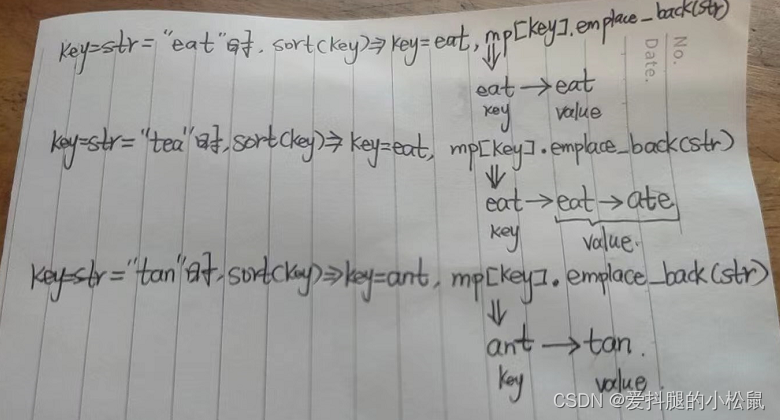 key=str="eat"时, sort(key)⇒key=eat, mp[key].emplace_back(str)
⇓
eat→eat
key value
No.
Date.
key=str="tea"时, sort(key)⇒key=eat, mp[key].emplace_back(str)
⇓
eat→eat→ate
key value.
key=str="tan"时, sort(key)⇒key=ant, mp[key].emplace_back(str)
⇓
ant→tan.
key value.
CSDN @爱抖腿的小松鼠